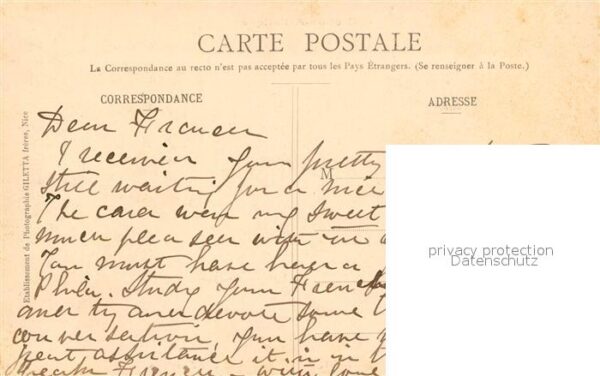 CARTE POSTALE
La Correspondance au recto n'est pas acceptée par tous les Pays Étrangers. (Se renseigner à la Poste.)
CORRESPONDANCE
ADRESSE
Etablissement de Photographie GILETTA frères, Nice
Dear
I received your pretty
M
still waiting for a nice
The card was sweet
much pleased with it
You must have had a
Phila. Study your French
and try and devote some
conversation, you have
great assistance it is in
with love
privacy protection
Datenschutz